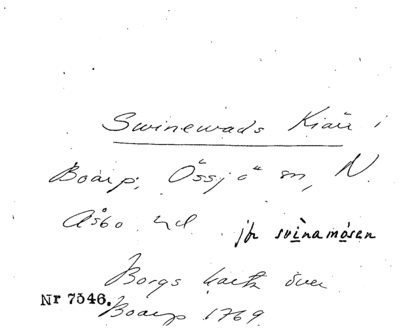 Swinewads Kiäu i
Boarp, Össjö sn, N.
Åsbo hd. jfr svinamosen
Borgs karta över
Nr 7546. Boarp 1769.